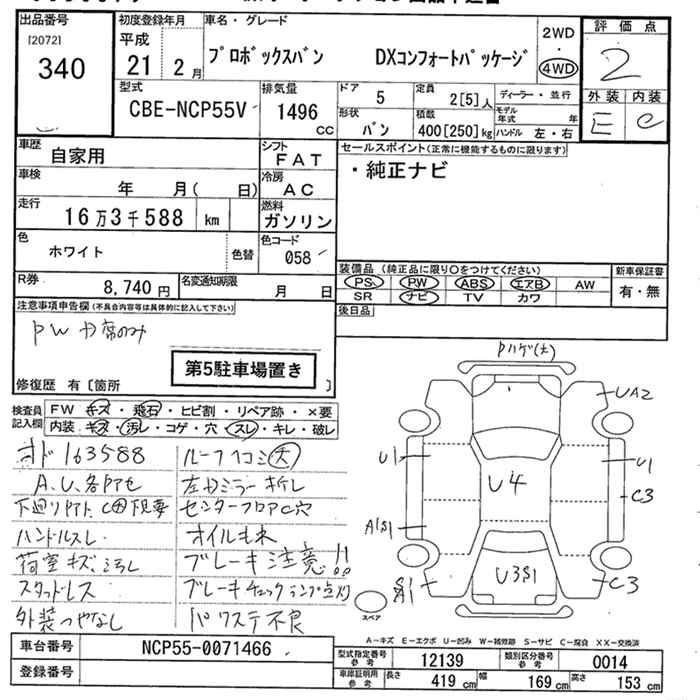 出品番号
[2072]
340
初度登録年月
平成
21 2月
車名・グレード
プロボックスバン DXコンフォートパッケージ
2WD
・
4WD
評価点
2
外装 内装
E C
型式
CBE-NCP55V
排気量
1496
cc
ドア 5
定員 2[5]人
ディーラー・並行
形状 バン
積載 400[250]kg
モデル年式 年
ハンドル 左・右
車歴 自家用
シフト FAT
車検 年 月( 日)
冷房 AC
走行 16万3千588 km
燃料 ガソリン
色 ホワイト 色替
色コード 058
R券 8,740円
名変通知期限 月 日
セールスポイント(正常に機能するものに限ります)
・純正ナビ
装備品 (純正品に限り○をつけてください)
PS PW ABS エアB AW
SR ナビ TV カワ
新車保証書
有・無
後日品
注意事項申告欄(不具合内容等は具体的に記入して下さい)
PW カ席のみ
第5駐車場置き
修復歴 有[箇所 ]
検査員記入欄
FW キズ・飛石・ヒビ割・リペア跡・×要
内装 キズ・汚レ・コゲ・穴・スレ・キレ・破レ
オド163588
A.U.各所
下廻りサビ C大 下見要
ハンドルスレ
荷室キズ、汚レ
スタッドレス
外装つやなし
ルーフ凹ミ大
左ドアミラーキレ
センターフロアC穴
オイルモレ
ブレーキ注意!!
ブレーキチェックランプ点灯
パワステ不良
Pハゲ(大)
UA2
U1
U1
U4
C3
A1S1
U3S1
C3
S1
A1
スペア
A-キズ E-エクボ U-凹み W-補修跡 S-サビ C-腐食 XX-交換済
車台番号 NCP55-0071466
登録番号
型式指定番号 参考 12139
類別区分番号 参考 0014
車庫証明用 参考
長さ 419 cm
幅 169 cm
高さ 153 cm